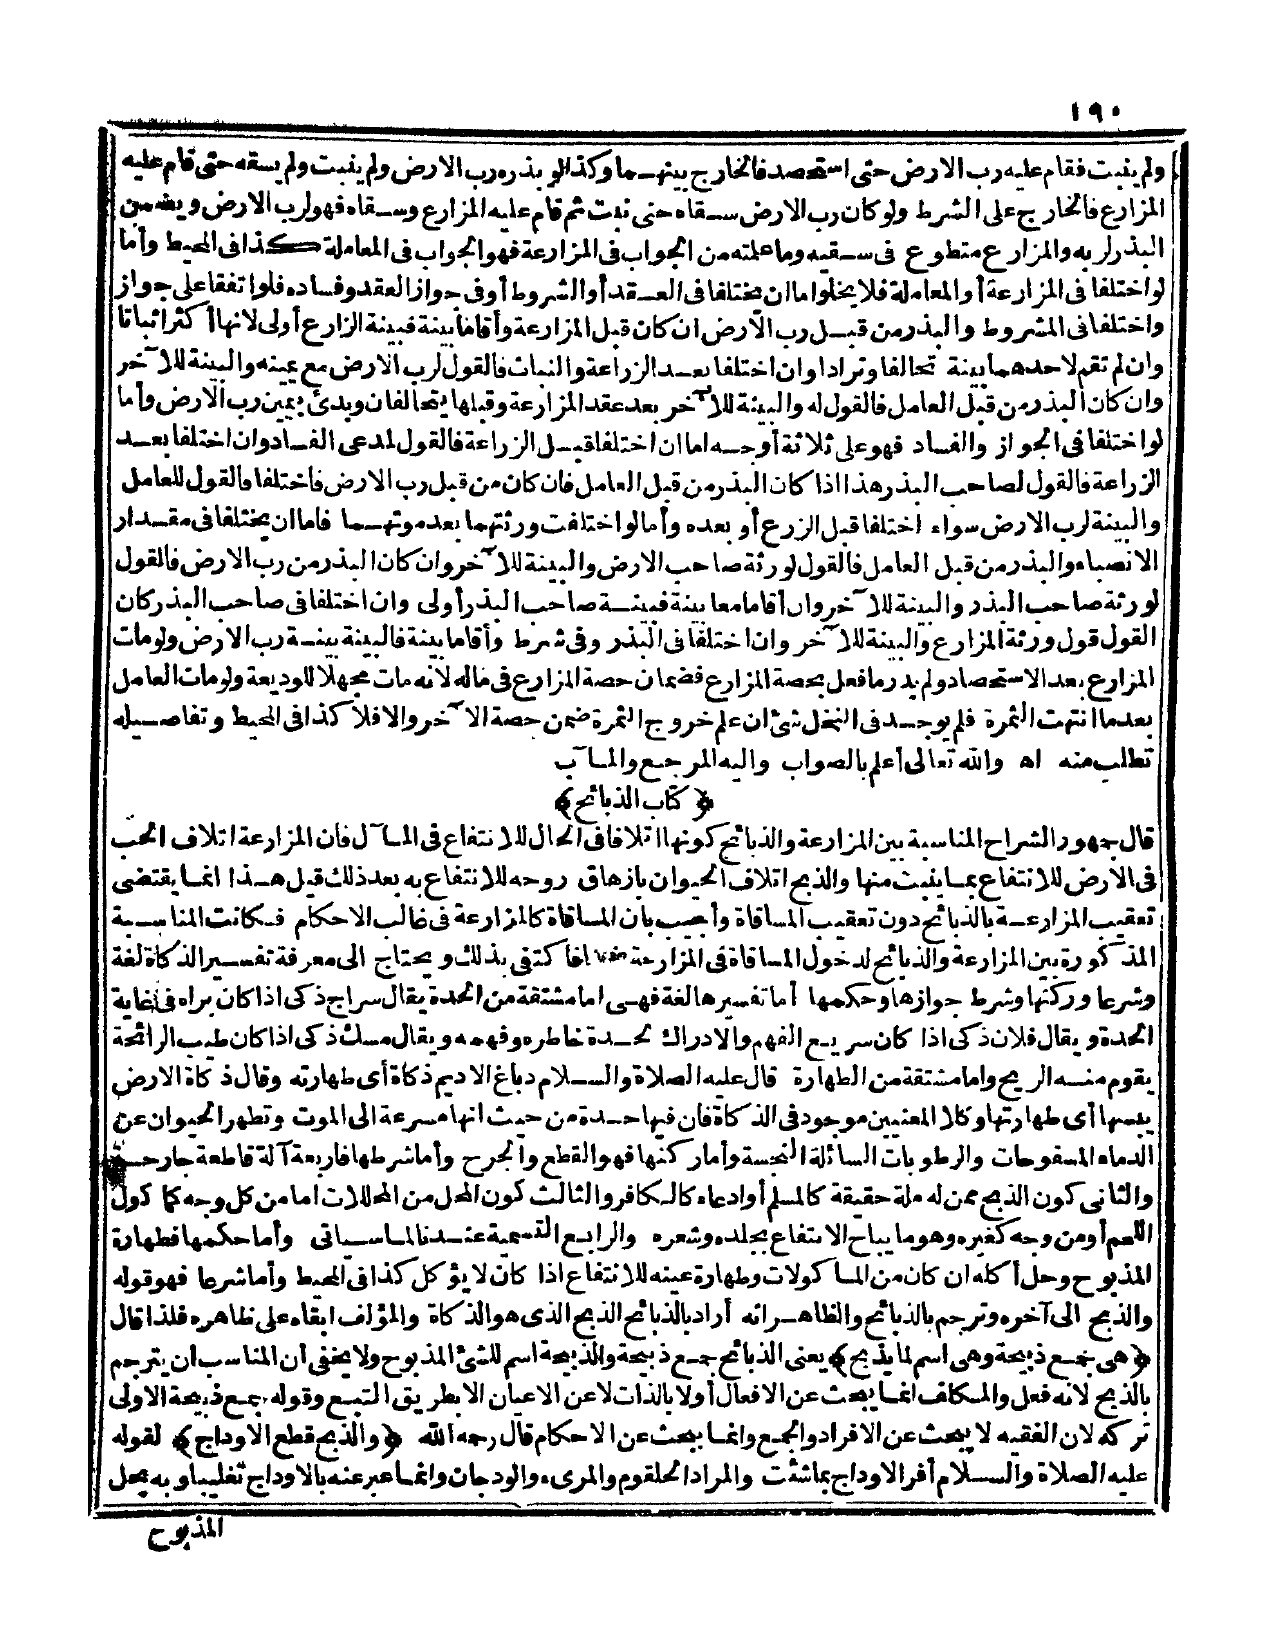 ١٩٠
ولم ينبت فقام عليه رب الارض حتى استحصد فالخارج بينهما وكذا لو بذره رب الارض ولم ينبت ولم يسقه حتى قام عليه
المزارع فالخارج على الشرط ولو كان رب الارض سقاه حتى نبت ثم قام عليه المزارع وسقاه فهو لرب الارض ويضمن
البذر لربه والمزارع متطوع فى سقيه وما علمته من الجواب فى المزارعة فهو الجواب فى المعاملة كذا فى المحيط وأما
لو اختلفا فى المزارعة أو المعاملة فلا يخلوا ما ان يختلفا فى العقد أو الشروط أو فى جواز العقد وفساده فلو اتفقا على جواز
واختلفا فى المشروط والبذر من قبل رب الارض ان كان قبل المزارعة وأقاما بينة فبينة الزارع أولى لانها أكثر اثباتا
وان لم تقم لاحدهما بينة تحالفا وترادا وان اختلفا بعد الزراعة والنبات فالقول لرب الارض مع يمينه والبينة للآخر
وان كان البذر من قبل العامل فالقول له والبينة للآخر بعد عقد المزارعة وقبلها يتحالفان وبدئ بيمين رب الارض وأما
لو اختلفا فى الجواز والفساد فهو على ثلاثة أوجه اما ان اختلفا قبل الزراعة فالقول لمدعى الفساد وان اختلفا بعد
الزراعة فالقول لصاحب البذر هذا اذا كان البذر من قبل العامل فان كان من قبل رب الارض فاختلفا فالقول للعامل
والبينة لرب الارض سواء اختلفا قبل الزرع أو بعده وأما لو اختلفت ورثتهما بعد موتهما فاما ان يختلفا فى مقدار
الانصباء والبذر من قبل العامل فالقول لورثة صاحب الارض والبينة للآخر وان كان البذر من رب الارض فالقول
لورثة صاحب البذر والبينة للآخر وان أقاما معا بينة فبينة صاحب البذر أولى وان اختلفا فى صاحب البذر كان
القول قول ورثة المزارع والبينة للآخر وان اختلفا فى البذر وفى شرط وأقاما بينة فالبينة بينة رب الارض ولو مات
المزارع بعد الاستحصاد ولم يدر ما فعل بحصة المزارع فضمان حصة المزارع فى ماله لانه مات مجهلا للوديعة ولو مات العامل
بعدما انتهت الثمرة فلم يوجد فى النخل شئ ان علم خروج الثمرة ضمن حصة الآخر والا فلا كذا فى المحيط وتفاصيله
تطلب منه اه والله تعالى أعلم بالصواب واليه المرجع والمآب
﴿ كتاب الذبائح ﴾
قال جمهور الشراح المناسبة بين المزارعة والذبائح كونها اتلافا فى الحال للانتفاع فى المآل فان المزارعة اتلاف الحب
فى الارض للانتفاع بما ينبت منها والذبح اتلاف الحيوان بازهاق روحه للانتفاع به بعد ذلك قيل هذا انما يقتضى
تعقيب المزارعة بالذبائح دون تعقيب المساقاة وأجيب بان المساقاة كالمزارعة فى غالب الاحكام فكانت المناسبة
المذكورة بين المزارعة والذبائح لدخول المساقاة فى المزارعة فاكتفى بذلك ويحتاج الى معرفة تفسير الذكاة لغة
وشرعا وركنها وشرط جوازها وحكمها أما تفسيرها لغة فهى اما مشتقة من الحدة يقال سراج ذكى اذا كان يراه فى غاية
الحدة ويقال فلان ذكى اذا كان سريع الفهم والادراك لحدة خاطره وفهمه ويقال مسك ذكى اذا كان طيب الرائحة
يقوم منه الريح واما مشتقة من الطهارة قال عليه الصلاة والسلام دباغ الاديم ذكاة أى طهارته وقال ذكاة الارض
يبسها أى طهارتها وكلا المعنيين موجود فى الذكاة فان فيها حدة من حيث انها مسرعة الى الموت وتطهر الحيوان عن
الدماء المسفوحات والرطوبات السائلة النجسة وأما ركنها فهو القطع والجرح وأما شرطها فاربعة آلة قاطعة جارحة
والثانى كون الذبح ممن له ملة حقيقة كالمسلم أو ادعاء كالكافر والثالث كون المحل من المحللات اما من كل وجه كما كول
اللحم أو من وجه كغيره وهو ما يباح الانتفاع بجلده وشعره والرابع التسمية عندنا لما سياتى وأما حكمها فطهارة
المذبوح وحل أكله ان كان من المأكولات وطهارة عينه للانتفاع اذا كان لا يؤكل كذا فى المحيط وأما شرعا فهو قوله
والذبح الى آخره وترجم بالذبائح والظاهر انه أراد بالذبائح الذبح الذى هو الذكاة والمؤلف ابقاء على ظاهره فلذا قال
﴿هى جمع ذبيحة وهى اسم لما يذبح﴾ يعنى الذبائح جمع ذبيحة والذبيحة اسم للشئ المذبوح ولا يخفى أن المناسب ان يترجم
بالذبح لانه فعل والمكلف انما يبحث عن الافعال أولا بالذات لا عن الاعيان الا بطريق التبع وقوله جمع ذبيحة الاولى
تركه لان الفقيه لا يبحث عن الافراد والجمع وانما يبحث عن الاحكام قال رحمه الله ﴿والذبح قطع الاوداج﴾ لقوله
عليه الصلاة والسلام أفر الاوداج بما شئت والمراد الحلقوم والمرىء والودجان وانما عبر عنه بالاوداج تغليبا وبه يحل
المذبوح